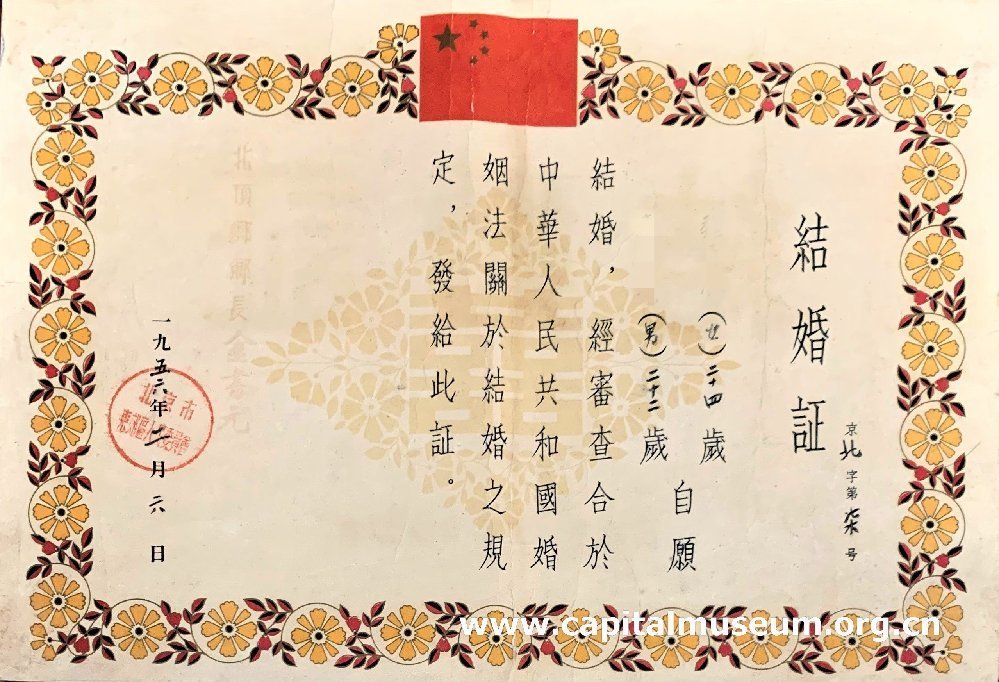 結婚証
京北字第号
（女）二十四歲
（男）二十二歲
自願
結婚，經審查合於
中華人民共和國婚
姻法關於結婚之規
定，發給此証。
北頂鄉鄉長金元
一九五六年二月六日
北京市
www.capitalmuseum.org.cn